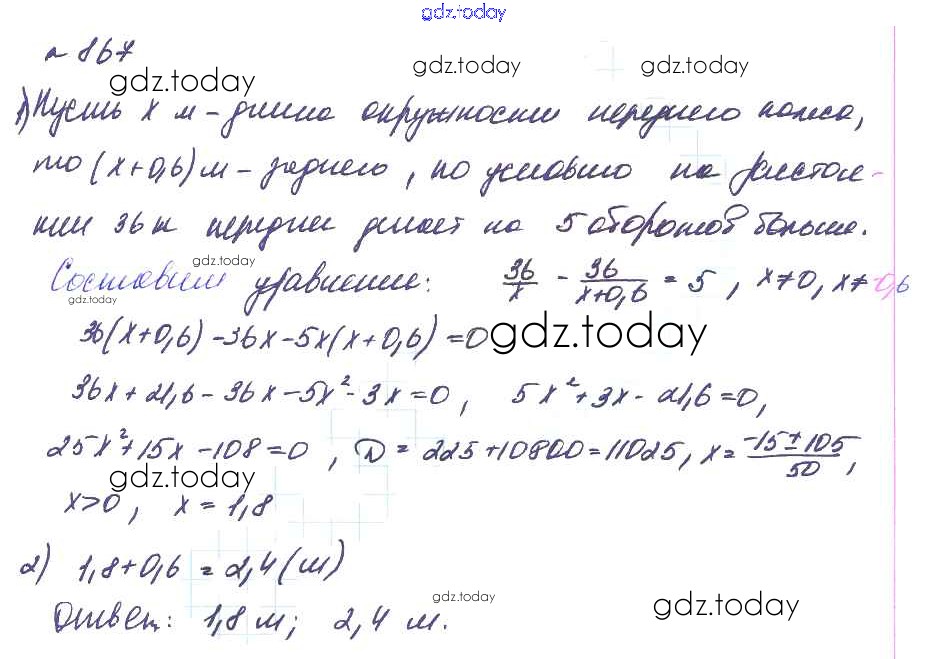 gdz.today
№ 867
gdz.today gdz.today gdz.today
1) Пусть x м - длина окружности переднего колеса,
то (x+0,6) м - заднего, по условию на расстоя-
нии 36 м переднее делает на 5 оборотов больше.
gdz.today
Составим уравнение: 36/x - 36/(x+0,6) = 5, x≠0, x≠-0,6
gdz.today
36(x+0,6) -36x-5x(x+0,6) =0
gdz.today
36x+21,6-36x-5x²-3x=0, 5x²+3x-21,6=0,
25x²+15x-108=0, D=225+10800=11025, x=(-15±105)/50,
gdz.today
x>0, x=1,8
2) 1,8+0,6=2,4(м)
gdz.today gdz.today
Ответ: 1,8 м; 2,4 м.